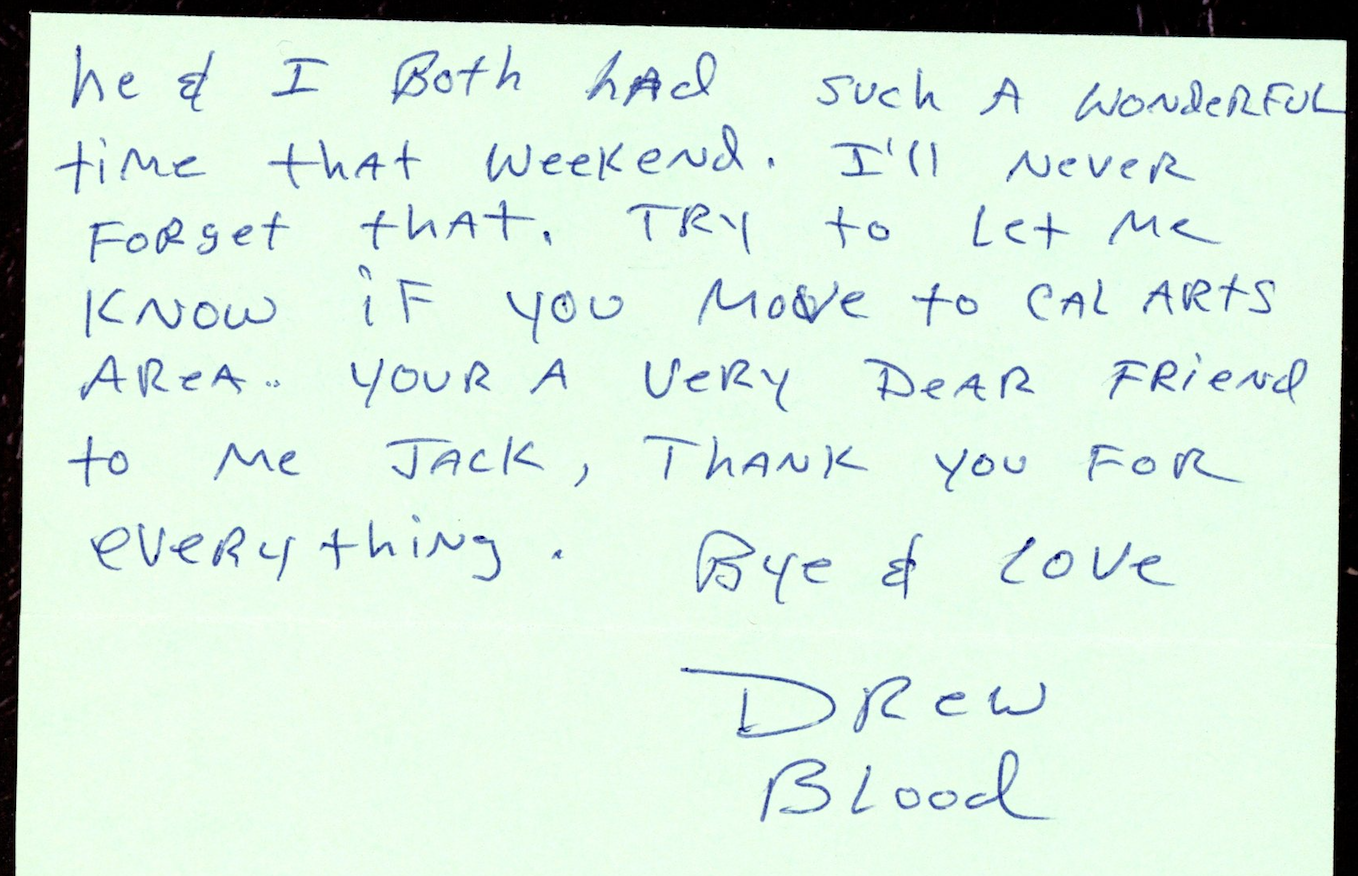 he & I Both had such A wonderful
time that weekend. I'll Never
Forget that. Try to Let Me
Know if you Move to CAL ARts
AReA.. YOUR A very Dear Friend
to Me JACK, Thank you For
everything. Bye & Love
Drew
Blood